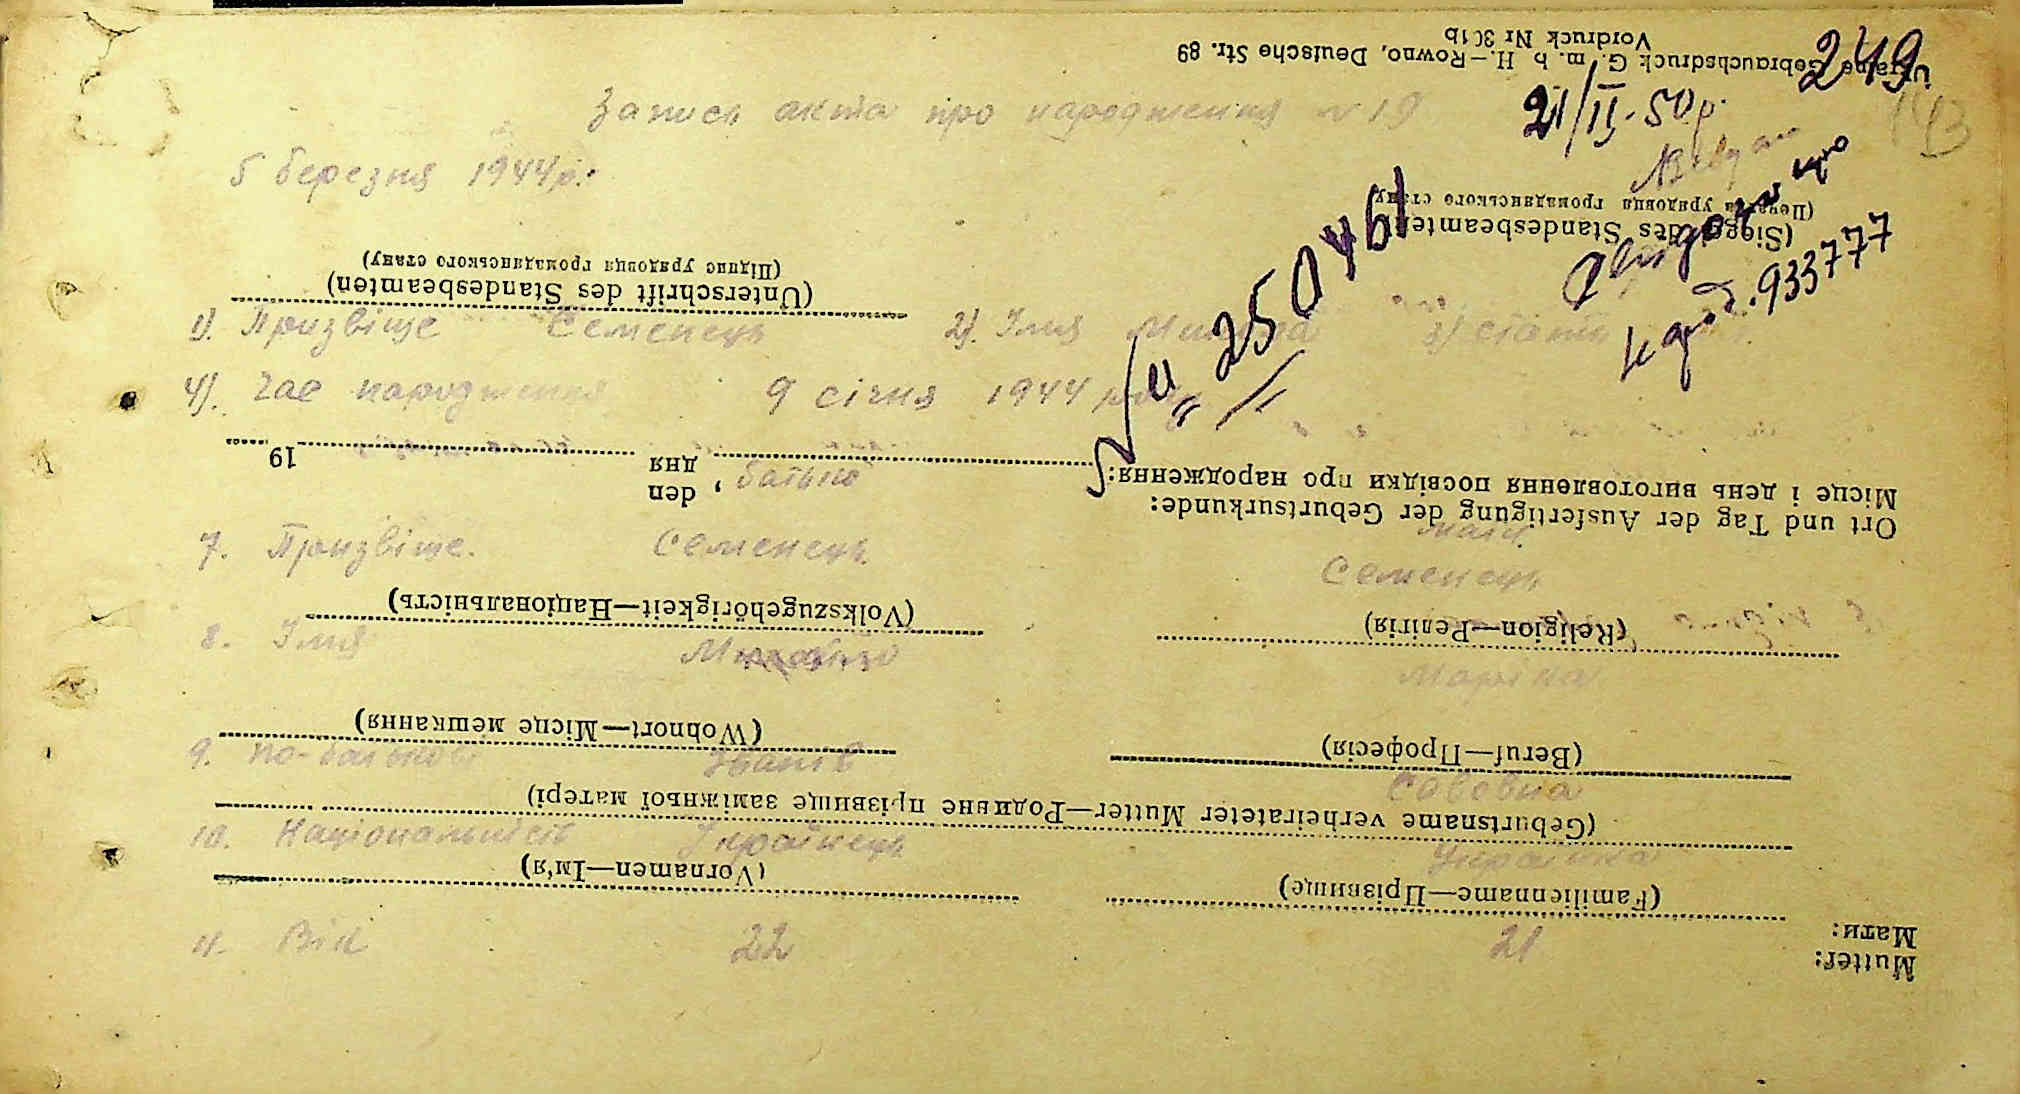 249
143
Ukraine Gebrauchsdruck G. m. b. H.—Rowno, Deutsche Str. 89
Vordruck Nr 301b
Запись акта про народження № 19
21/II-50р.
5 березня 1944р.
(Печатка урядовця громадянського стану)
(Siegel des Standesbeamten)
№ 250461
933777
(Підпис урядовця громадянського стану)
(Unterschrift des Standesbeamten)
1). Призвіще Семенець 2). Імя 3) стать
4). Час народження 9 січня 1944 року
19 дня
den , батько
Місце і день виготовлення посвідки про народження:
Ort und Tag der Ausfertigung der Geburtsurkunde:
мати
7. Призвіще. Семенець Семенець
(Volkszugehörigkeit—Національність) (Religion—Релігія)
8. Імя Михайло Марійка
(Wohnort—Місце мешкання) (Beruf—Професія)
9. по-батькові Іванів Савовна
(Geburtsname verheirateter Mutter—Родинне прізвище заміжньої матері)
10. Національність Українець Українка
(Vornamen—Ім'я) (Familienname—Прізвище)
11. Вік 22 21
Мати:
Mutter: